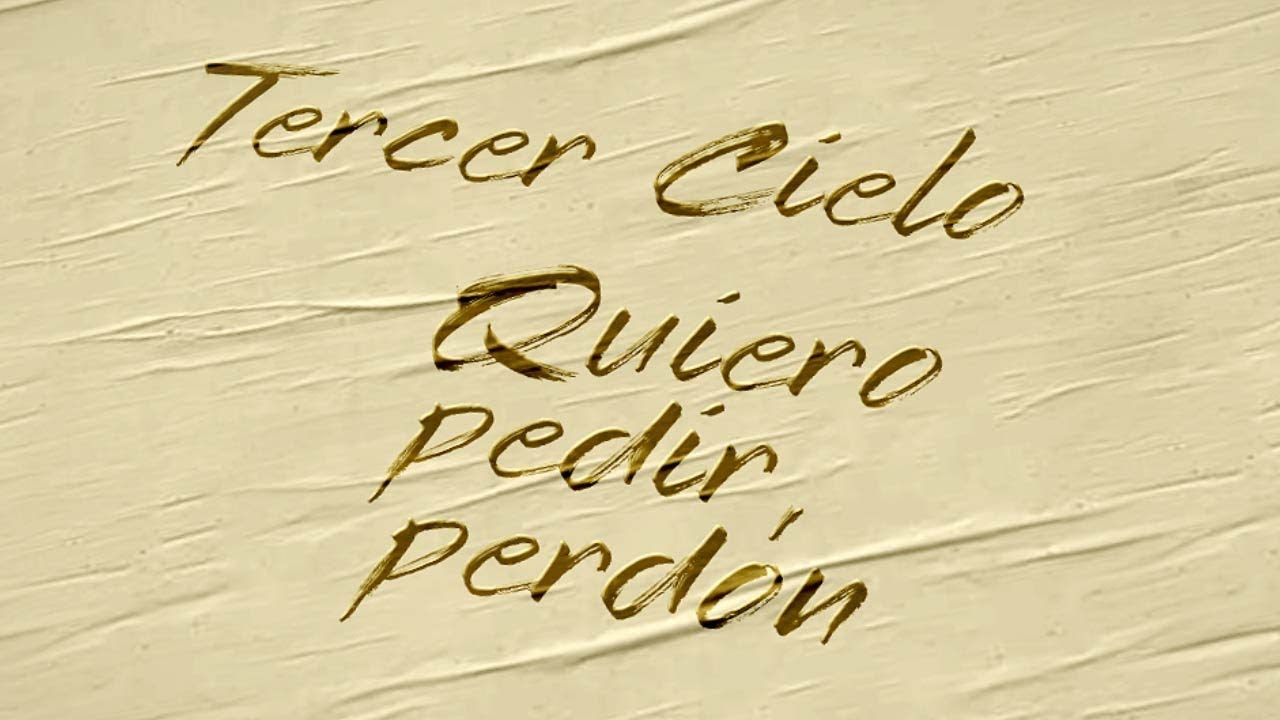 Tercer Cielo
Quiero
pedir
perdón